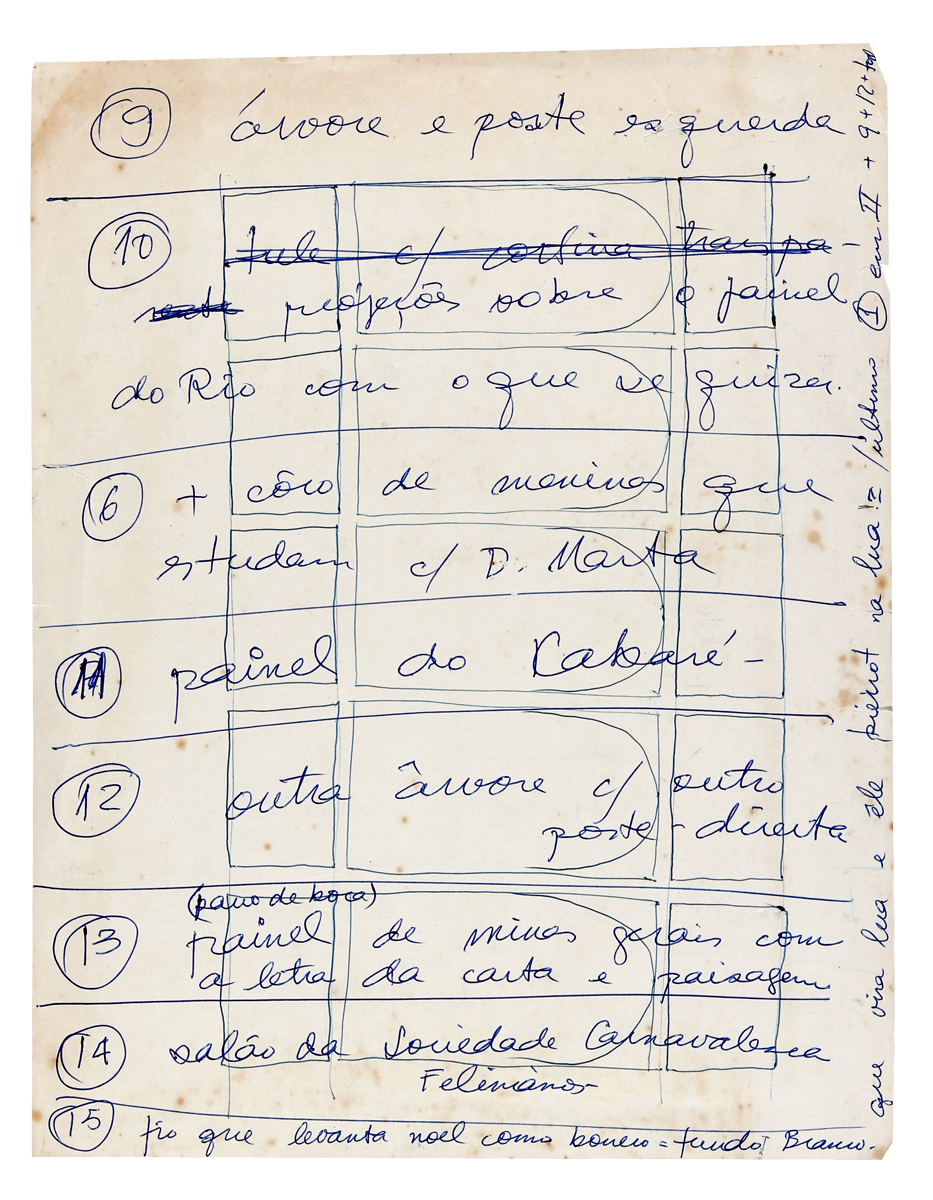 9 árvore e poste esquerda
10 tule c/ cortina transpa-
rente projeções sobre o painel
do Rio com o que se quizer.
16 + côro de meninos que
estudam c/ D. Marta
11 painel do Cabaré -
12 outra árvore c/ outro
poste - direita
(pano de boca)
13 painel de minas gerais com
a letra da carta e paisagem
14 salão da Sociedade Carnavalesca
Felinianos -
15 fio que levanta noel como boneco = fundo Branco.
que vira lua e êle pierrot na lua != /último I em II + 9+12+